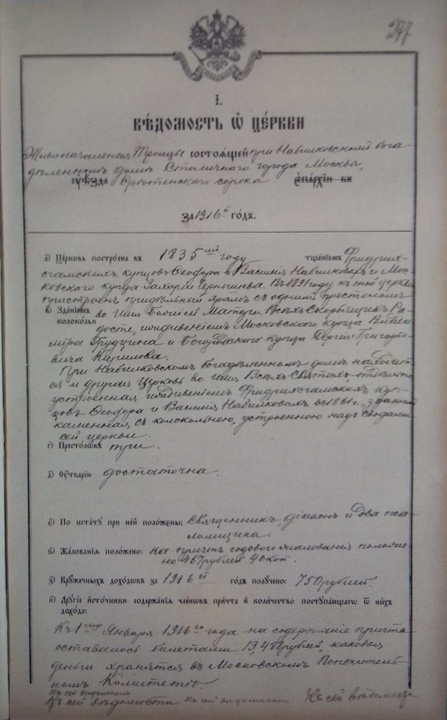 297
I.
ВѢДОМОСТЬ Ѡ ЦЕРКВИ
Живоначальныя Троицы состоящей при Набилковскомъ бога
дѣленномъ домѣ Столичнаго города Москвы,
уѣзда Срѣтенскаго сорока епархіи въ
за 1916й годъ.
а) Церковь построена въ 1835мъ году тщаніемъ Фридрих
сгамскихъ купцовъ Ѳеодора и Василія Набилковыхъ и Мос
ковскаго купца Захара Чернышева. Въ 1891 году къ сей церкви
пристроенъ придѣльный храмъ съ однимъ престоломъ
в) Зданіемъ во Имя Божіей Матери, Всѣхъ Скорбящихъ Ра
Колокольня дости, иждивеніемъ Московскаго купца Влади
міра Грудчина и купца Сергія Григорь
евича
При Набилковскомъ Богадѣленномъ домѣ находит
ся и другая Церковь во Имя Всѣхъ Святыхъ
устроенная иждивеніемъ Фридрихсгамскихъ куп
цовъ Ѳеодора и Василія Набилковыхъ въ зданіемъ
каменная, съ колокольнею, устроенною надъ сводами
сей церкви
г) Престоловъ три.
д) Оутвари достаточна.
е) По штату при ней положены: Священникъ, діаконъ и два пса
ломщика.
ж) Жалованья положено: на причтъ годоваго жалованья положе
но 467 рублей 40 коп.
з) Кружечныхъ доходовъ за 1916й годъ получено: 750 рублей.
и) Другіе источники содержанія членовъ причта и количество поступающаго ѿ нихъ
дохода:
Къ 1му Января 1916 года на содержаніе причта
оставалось билетами рублей, каковыя
деньги хранятся въ Московскомъ Попечитель
номъ Комитетѣ.
Къ сей вѣдомости
Къ сей вѣдомости къ сей вѣдомости Къ сей вѣдомости